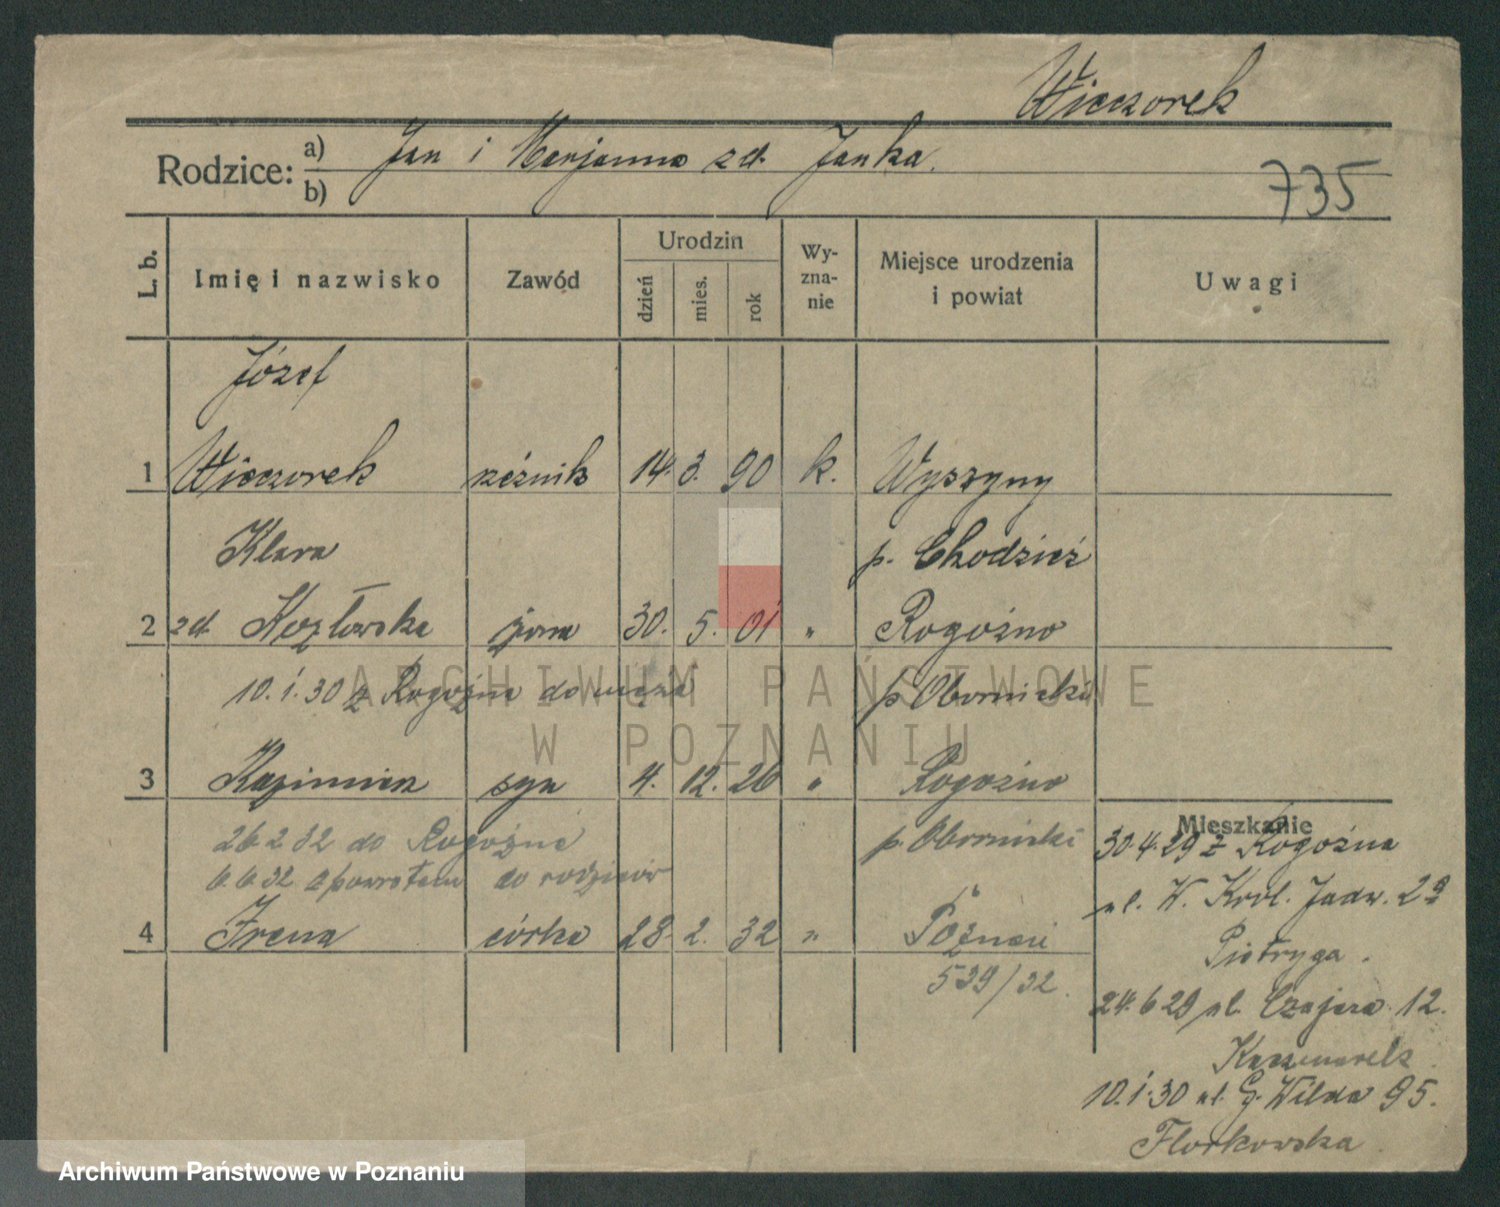 Wieczorek
Rodzice: a) Jan i Marjanna zd. Janka.
b)
735
L. b.
Imię i nazwisko
Zawód
Urodzin
dzień
mies.
rok
Wy-
zna-
nie
Miejsce urodzenia
i powiat
Uwagi
Józef
1 Wieczorek rzeźnik 14. 3. 90 k. Wyszyny
Klara p. Chodzież
2 zd. Kozłowska żona 30. 5. 01 " Rogoźno
10.1.30 z Rogoźna do męża p. Obornicki
3 Kazimierz syn 4. 12. 26 " Rogoźno
26 2 32 do Rogoźna p. Obornicki
6. 6 32 z powrotem do rodziców
4 Irena córka 28. 2. 32 " Poznań
539/32.
Mieszkanie
30.4.29 z Rogoźna
ul. W. Król. Jadw. 2a
Pietryga.
24.6 29 ul. Czajcza 12.
Kaczmarek.
10.1.30 ul. G. Wilda 95.
Florkowska.
ARCHIWUM PAŃSTWOWE
W POZNANIU
Archiwum Państwowe w Poznaniu